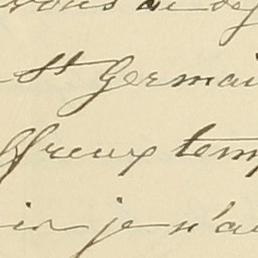 vous ai dé
St Germai
ffreux temp
ir je n'ai